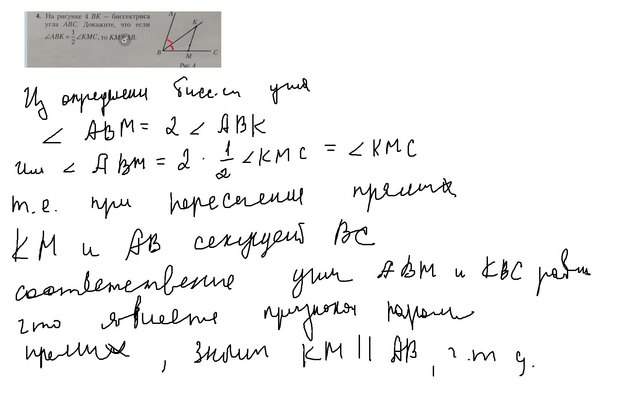 4. На рисунке 4 BK – биссектриса
угла ABC. Докажите, что если
∠ABK = 1/2 ∠KMC, то KM ∥ AB.
A
K
B
M
C
Рис. 4
Из определени бисс-сы угла
∠ ABM = 2 ∠ ABK
или ∠ ABM = 2 · 1/2 ∠KMC = ∠KMC
т.е. при пересечении прямых
KM и AB секущей BC
соответственные углы ABM и KBC равны
что является признаком
прямых, значит KM || AB, ч.т.д.